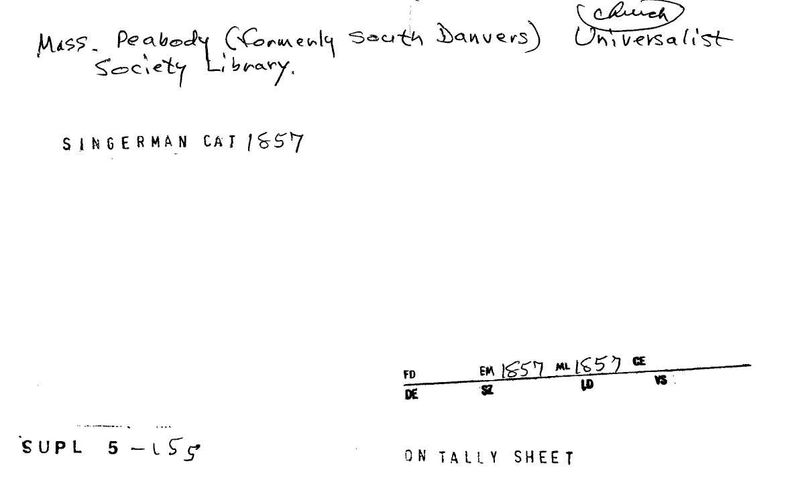 church
Mass. Peabody (formerly South Danvers) Universalist
Society Library.
SINGERMAN CAT 1857
FD EM 1857 ML 1857 CE
DE SZ LD VS
SUPL 5-155
ON TALLY SHEET